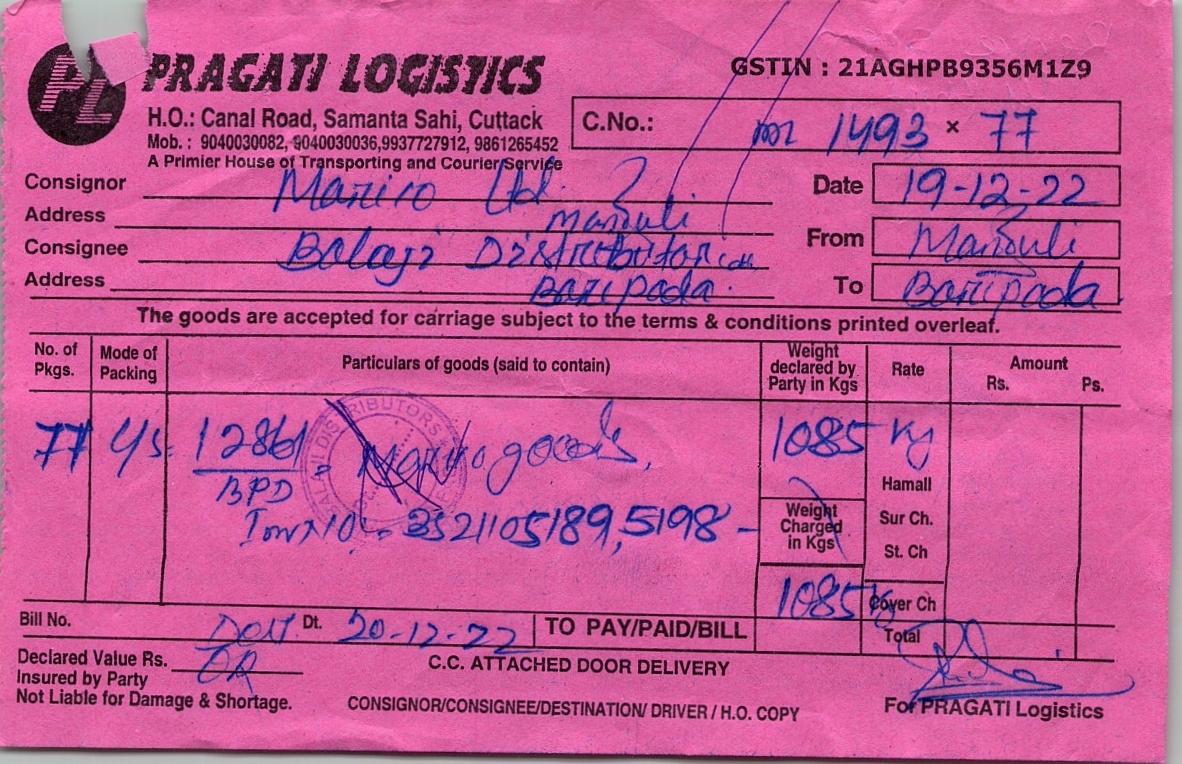 PL PRAGATI LOGISTICS
GSTIN : 21AGHPB9356M1Z9
H.O.: Canal Road, Samanta Sahi, Cuttack
Mob. : 9040030082, 9040030036,9937727912, 9861265452
A Primier House of Transporting and Courier Service
C.No.: 1493 × 77
Consignor Marico Ltd.
Date 19-12-22
Address Manguli
From Manguli
Consignee Balaji Distributor
Address Baripada.
To Baripada
The goods are accepted for carriage subject to the terms & conditions printed overleaf.
No. of Pkgs. Mode of Packing Particulars of goods (said to contain) Weight declared by Party in Kgs Rate Amount Rs. Ps.
77 C/s. 12861 Marico goods, 1085 Kg
BPD
Hamall
Inv No - 3521105189, 5198 -
Weight Charged in Kgs
Sur Ch.
St. Ch
1085 Kg
Cover Ch
Bill No. Dt. 20-12-22 TO PAY/PAID/BILL Total
Declared Value Rs.
C.C. ATTACHED DOOR DELIVERY
Insured by Party
Not Liable for Damage & Shortage.
CONSIGNOR/CONSIGNEE/DESTINATION/ DRIVER / H.O. COPY
For PRAGATI Logistics